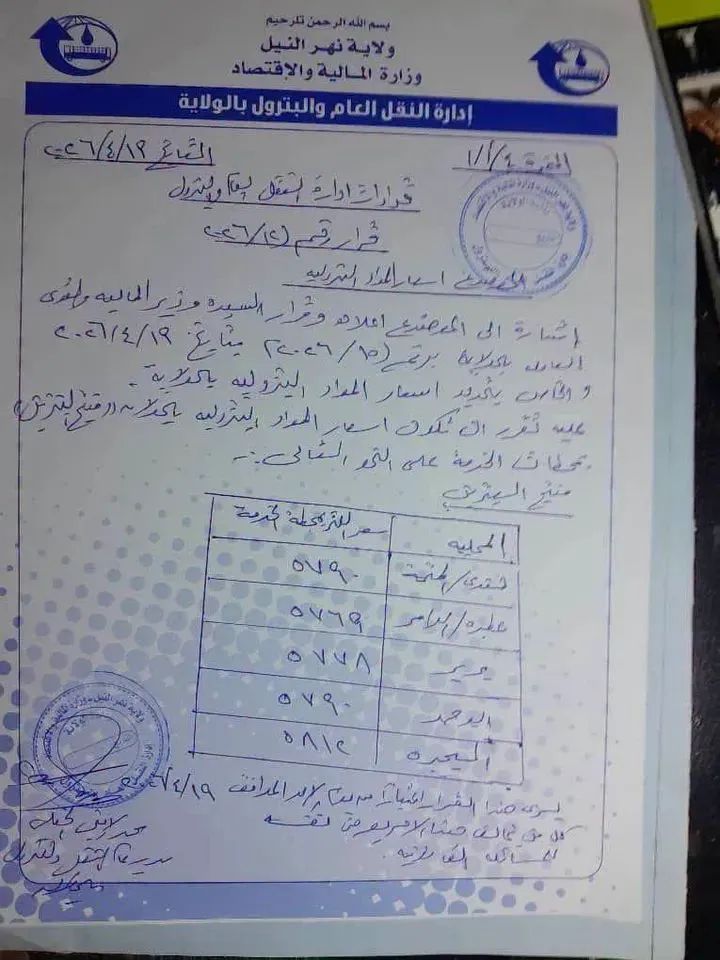 بسم الله الرحمن الرحيم
ولاية نهر النيل
وزارة المالية والإقتصاد
إدارة النقل العام والبترول بالولاية
النمرة ٤/أ/١/١
التاريخ ٢٠٢٦/٤/١٩
قرارات إدارة النقل العام والبترول
قرار رقم (٢٠٢٦/١٢)
الموضوع اسعار المواد البترولية
إشارة الى الموضوع اعلاه وقرار السيد وزير المالية والقوى
العاملة بالولاية برقم (٢٠٢٦/١٥) بتاريخ ٢٠٢٦/٤/١٩
والخاص بتحديد اسعار المواد البترولية بالولاية.
عليه تقرر ان تكون اسعار المواد البترولية بالولاية
بمحطات الخدمة على النحو التالي:-
منتج البنزين
المحلية سعر اللتر بمحطة الخدمة
شندي/المتمة ٥٧٩٠
عطبرة/الدامر ٥٧٦٩
بربر ٥٧٧٨
ابوحمد ٥٧٩٠
البحيرة ٥٨١٢
يسري هذا القرار اعتبارا من يوم الاحد الموافق ٢٠٢٦/٤/١٩
كل من يخالف هذا الامر يعرض نفسه
للمسائلة القانونية.
مدير عام النقل والبترول